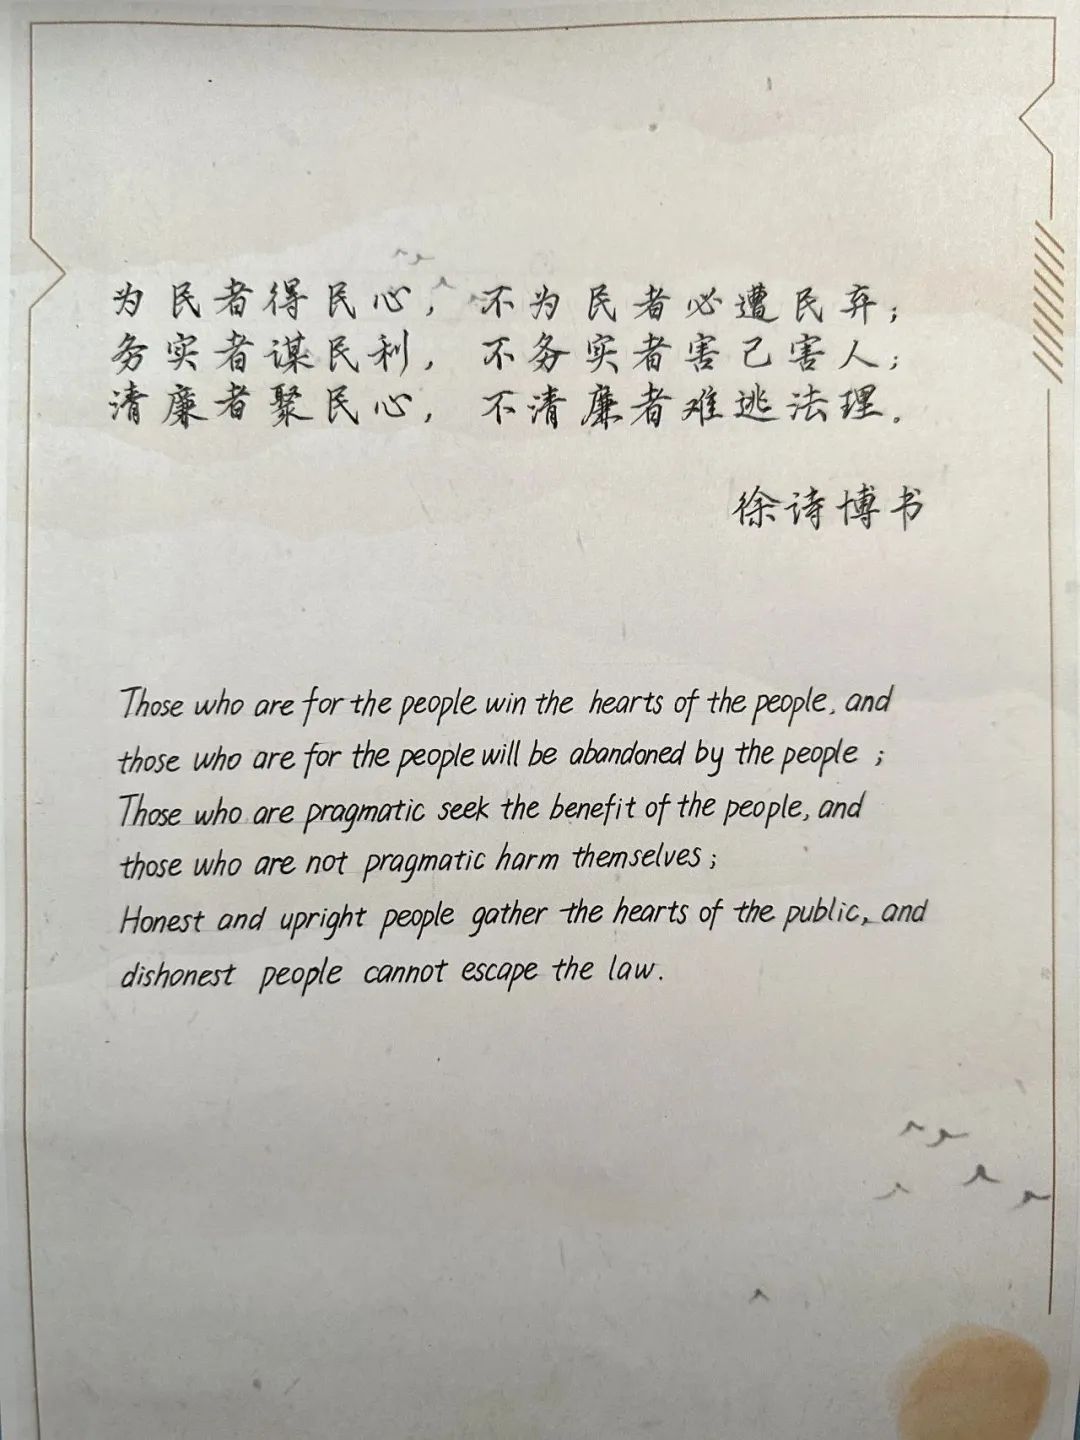 为民者得民心，不为民者必遭民弃；
务实者谋民利，不务实者害己害人；
清廉者聚民心，不清廉者难逃法理。
徐诗博书
Those who are for the people win the hearts of the people, and
those who are for the people will be abandoned by the people ;
Those who are pragmatic seek the benefit of the people, and
those who are not pragmatic harm themselves ;
Honest and upright people gather the hearts of the public, and
dishonest people cannot escape the law.